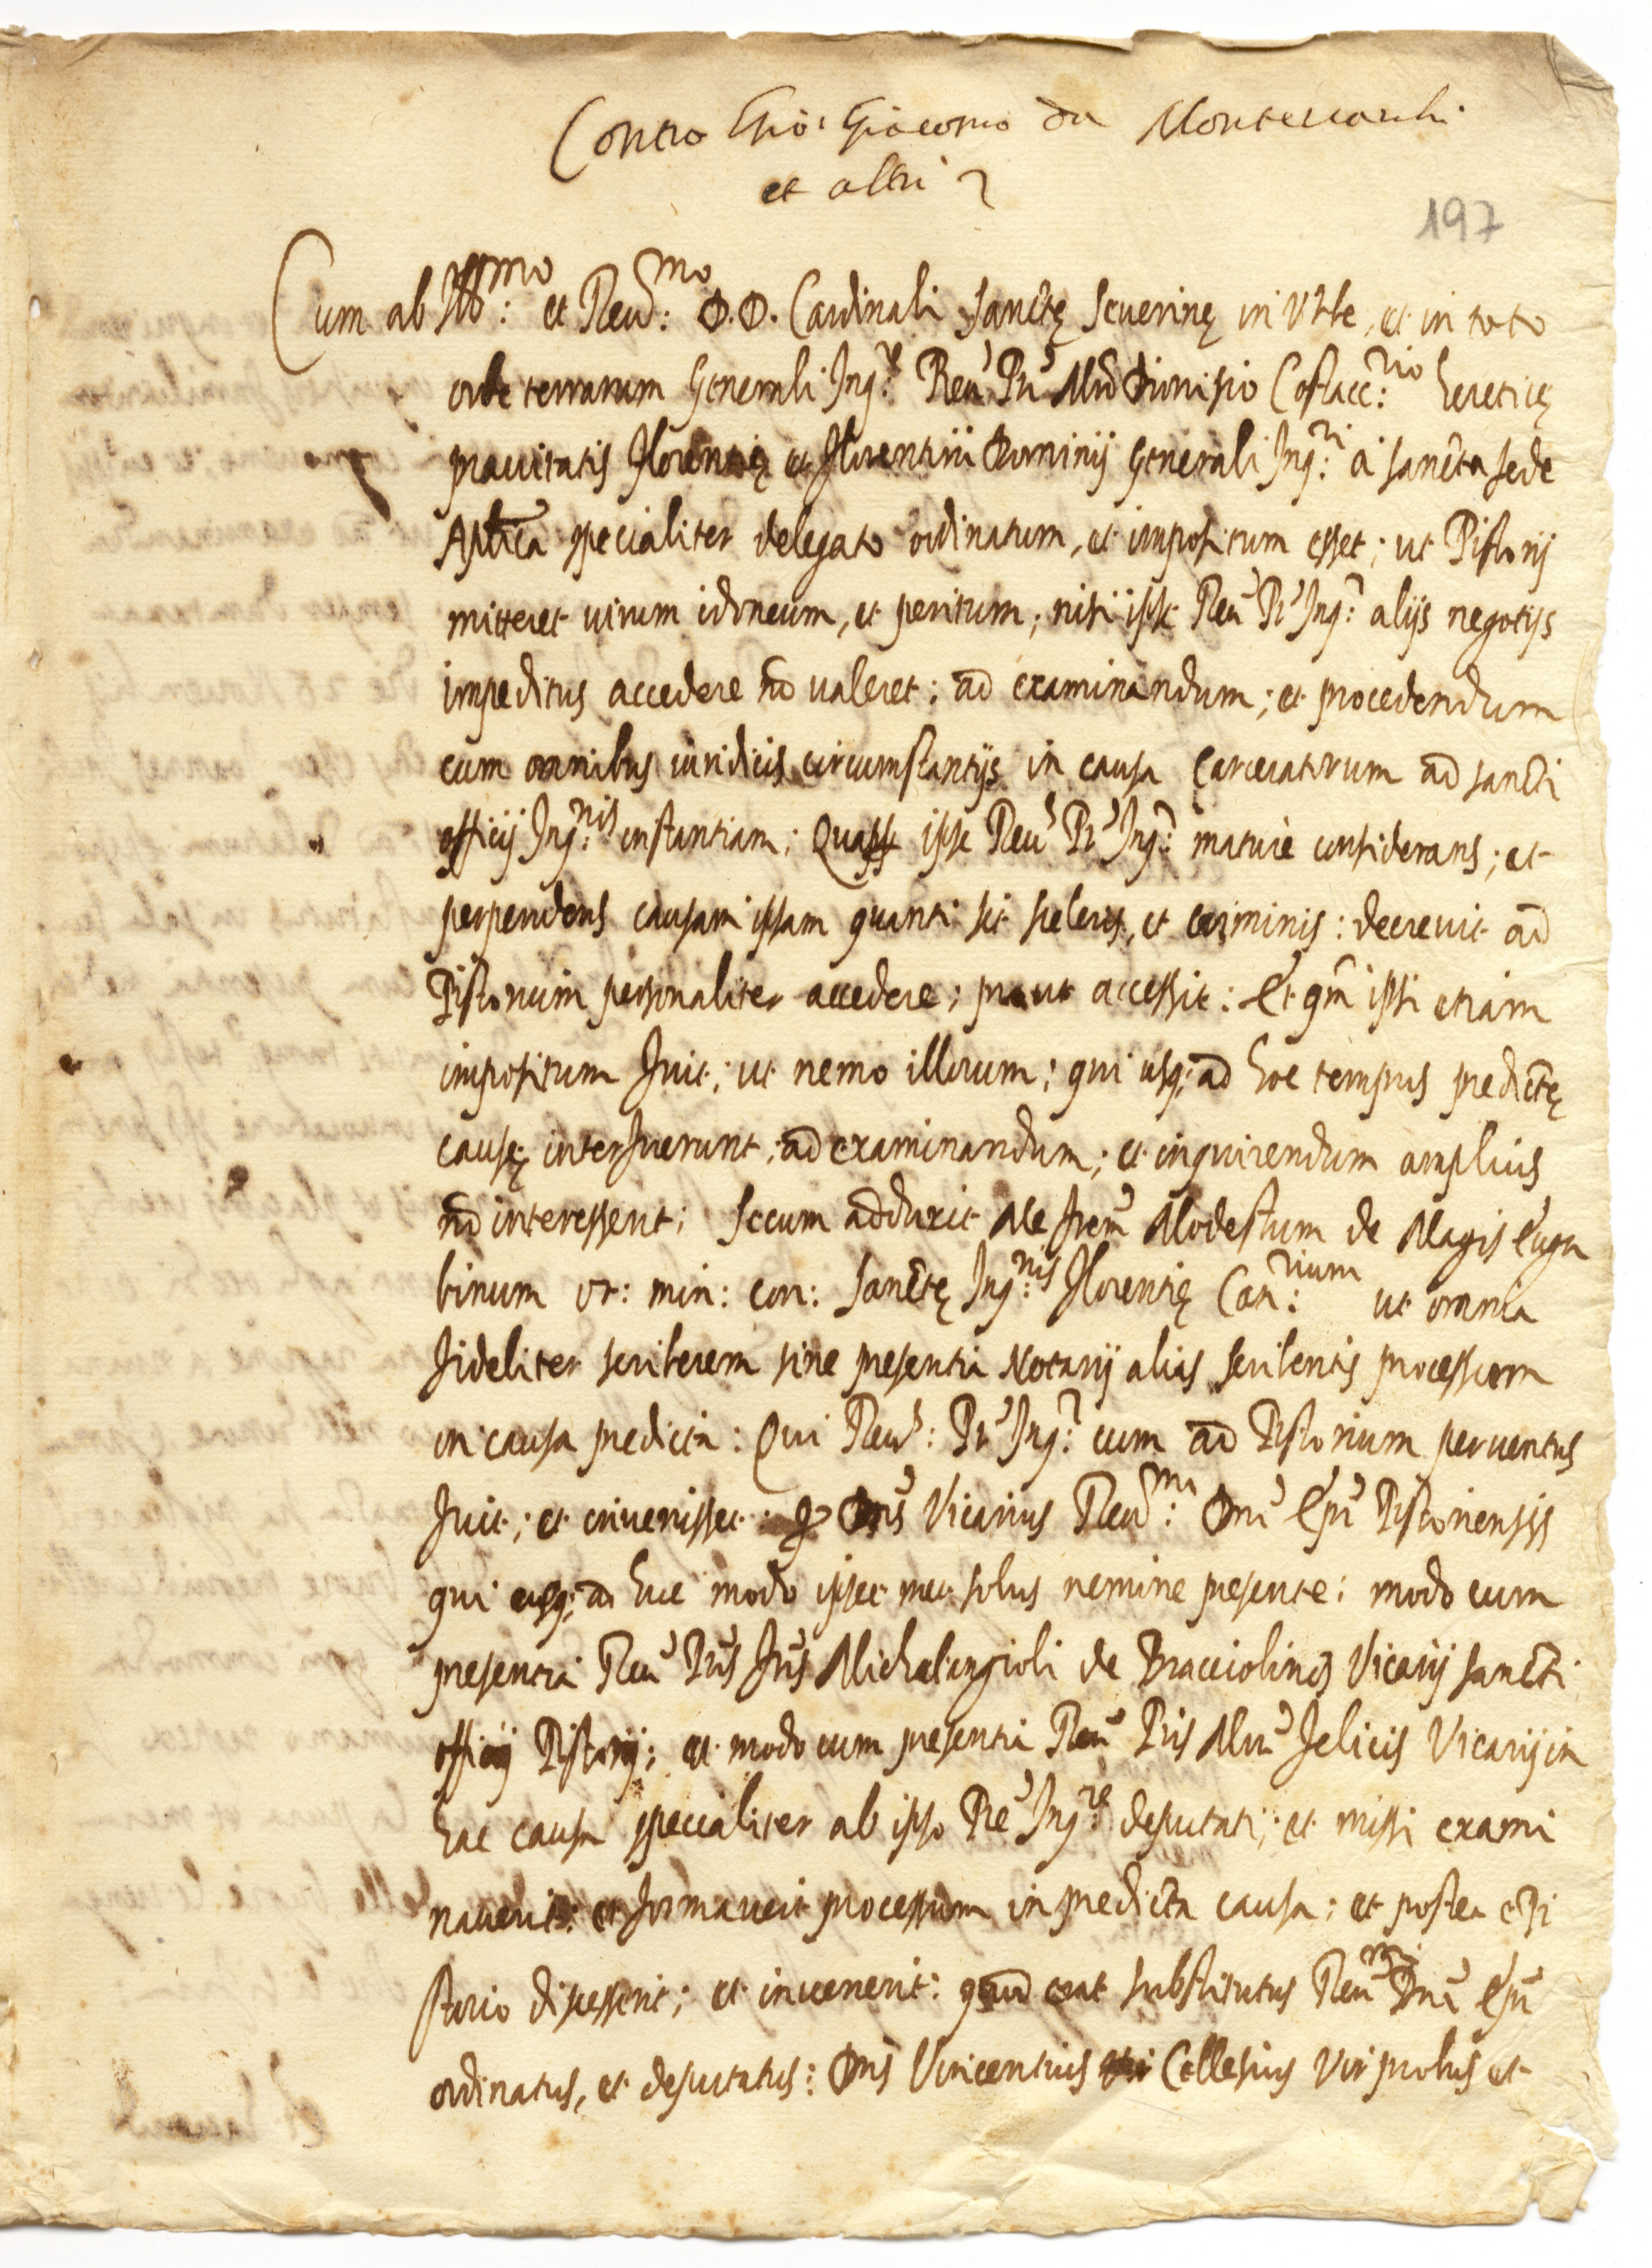 Contro Gio: Giacomo da Montevarchi
et altri
197
Cum ab Ill:mo et Reu:mo D.D. Cardinali Sanctę Seuerinę in Vrbe, et in toto
orbe terrarum Generali Inq:re Reu Pri Mro Dionisio Costacc:rio hereticę
prauitatis Florentię et Florentini Dominij Generali Inq:ri à sancta sede
Aplica specialiter delegato ordinatum, et impositum esset; ut Pistorij
mitteret uirum idoneum, et peritum; nisi ipse Reu Pr Inq:r alijs negotijs
impeditus accedere nō ualeret; ad examinandum; et procedendum
cum omnibus iuridicis circumstantijs in causa Carceratorum ad sancti
officij Inq:nis instantiam; Quapp ipse Reu Pr Inq:r maturè considerans; et
perpendens causam ipsam quanti sit sceleris, et criminis: decreuit ad
Pistorium personaliter accedere; prout accessit: Et qm̄ ipsi etiam
impositum fuit; ut nemo illorum; qui usq; ad hoc tempus predictę
causę interfuerunt; ad examinandum; et inquirendum amplius
nō interessent; Secum adduxit Me frem Modestum de Magis Eugu
binum or: min: con: Sanctę Inq:nis Florentię Can:rium ut omnia
fideliter scriberem sine presentia Notarij alias scribentis processum
in causa predicta: Qui Reu: Pr Inq:r cum ad Pistorium peruentus
fuit; et inuenisset: q Dns Vicarius Reu:mi Dni Epi Pistoriensis
qui usq; ad huc modo ipsemet solus nemine presente; modo cum
presentia Reu Pris Fris Michelangioli de Bracciolinis Vicarij sancti
officij Pistorij; et modo cum presentia Reu Pris Mri Felicis Vicarij in
hac causa specialiter ab ipso Re Inq:re deputati; et missi exami
nauerit: et formauerit processum in predicta causa; et postea e Pi
storio discesserit; et inuenerit: quod erat substitutus Reu:mi Dni Epi
ordinatus, et deputatus: Dns Vincentius Cellesius Vir probus et